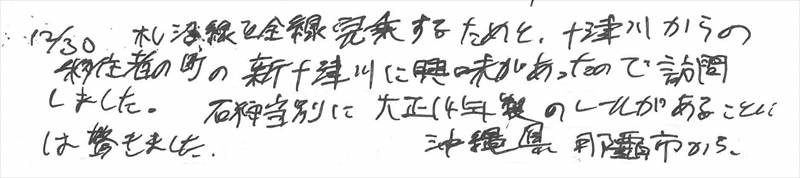 12/30 札沼線を全線完乗するためと、十津川からの
移住者の町の新十津川に興味があったので訪問
しました。 石狩当別に大正14年製のレールがあることに
は驚きました. 沖縄県 那覇市から、